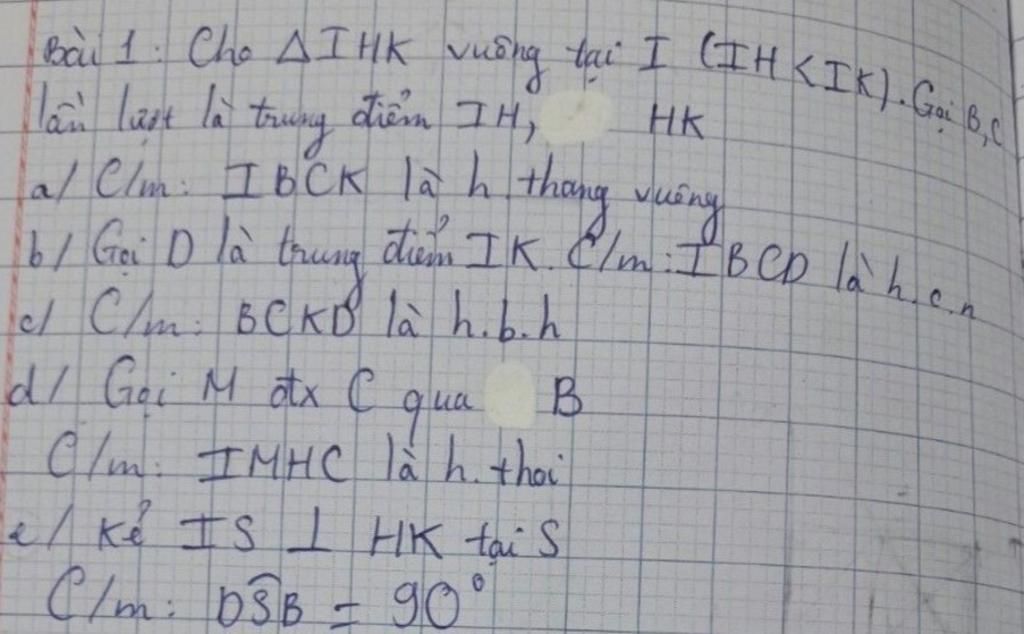 Bài 1: Cho ΔIHK vuông tại I (IH < IK). Gọi B, C
lần lượt là trung điểm IH, HK
a/ C/m: IBCK là h thang vuông
b/ Gọi D là trung điểm IK. C/m: IBCD là h.c.n
c/ C/m: BCKD là h.b.h
d/ Gọi M đx C qua B
C/m: IMHC là h. thoi
e/ Kẻ IS ⊥ HK tại S
C/m: DŜB = 90°